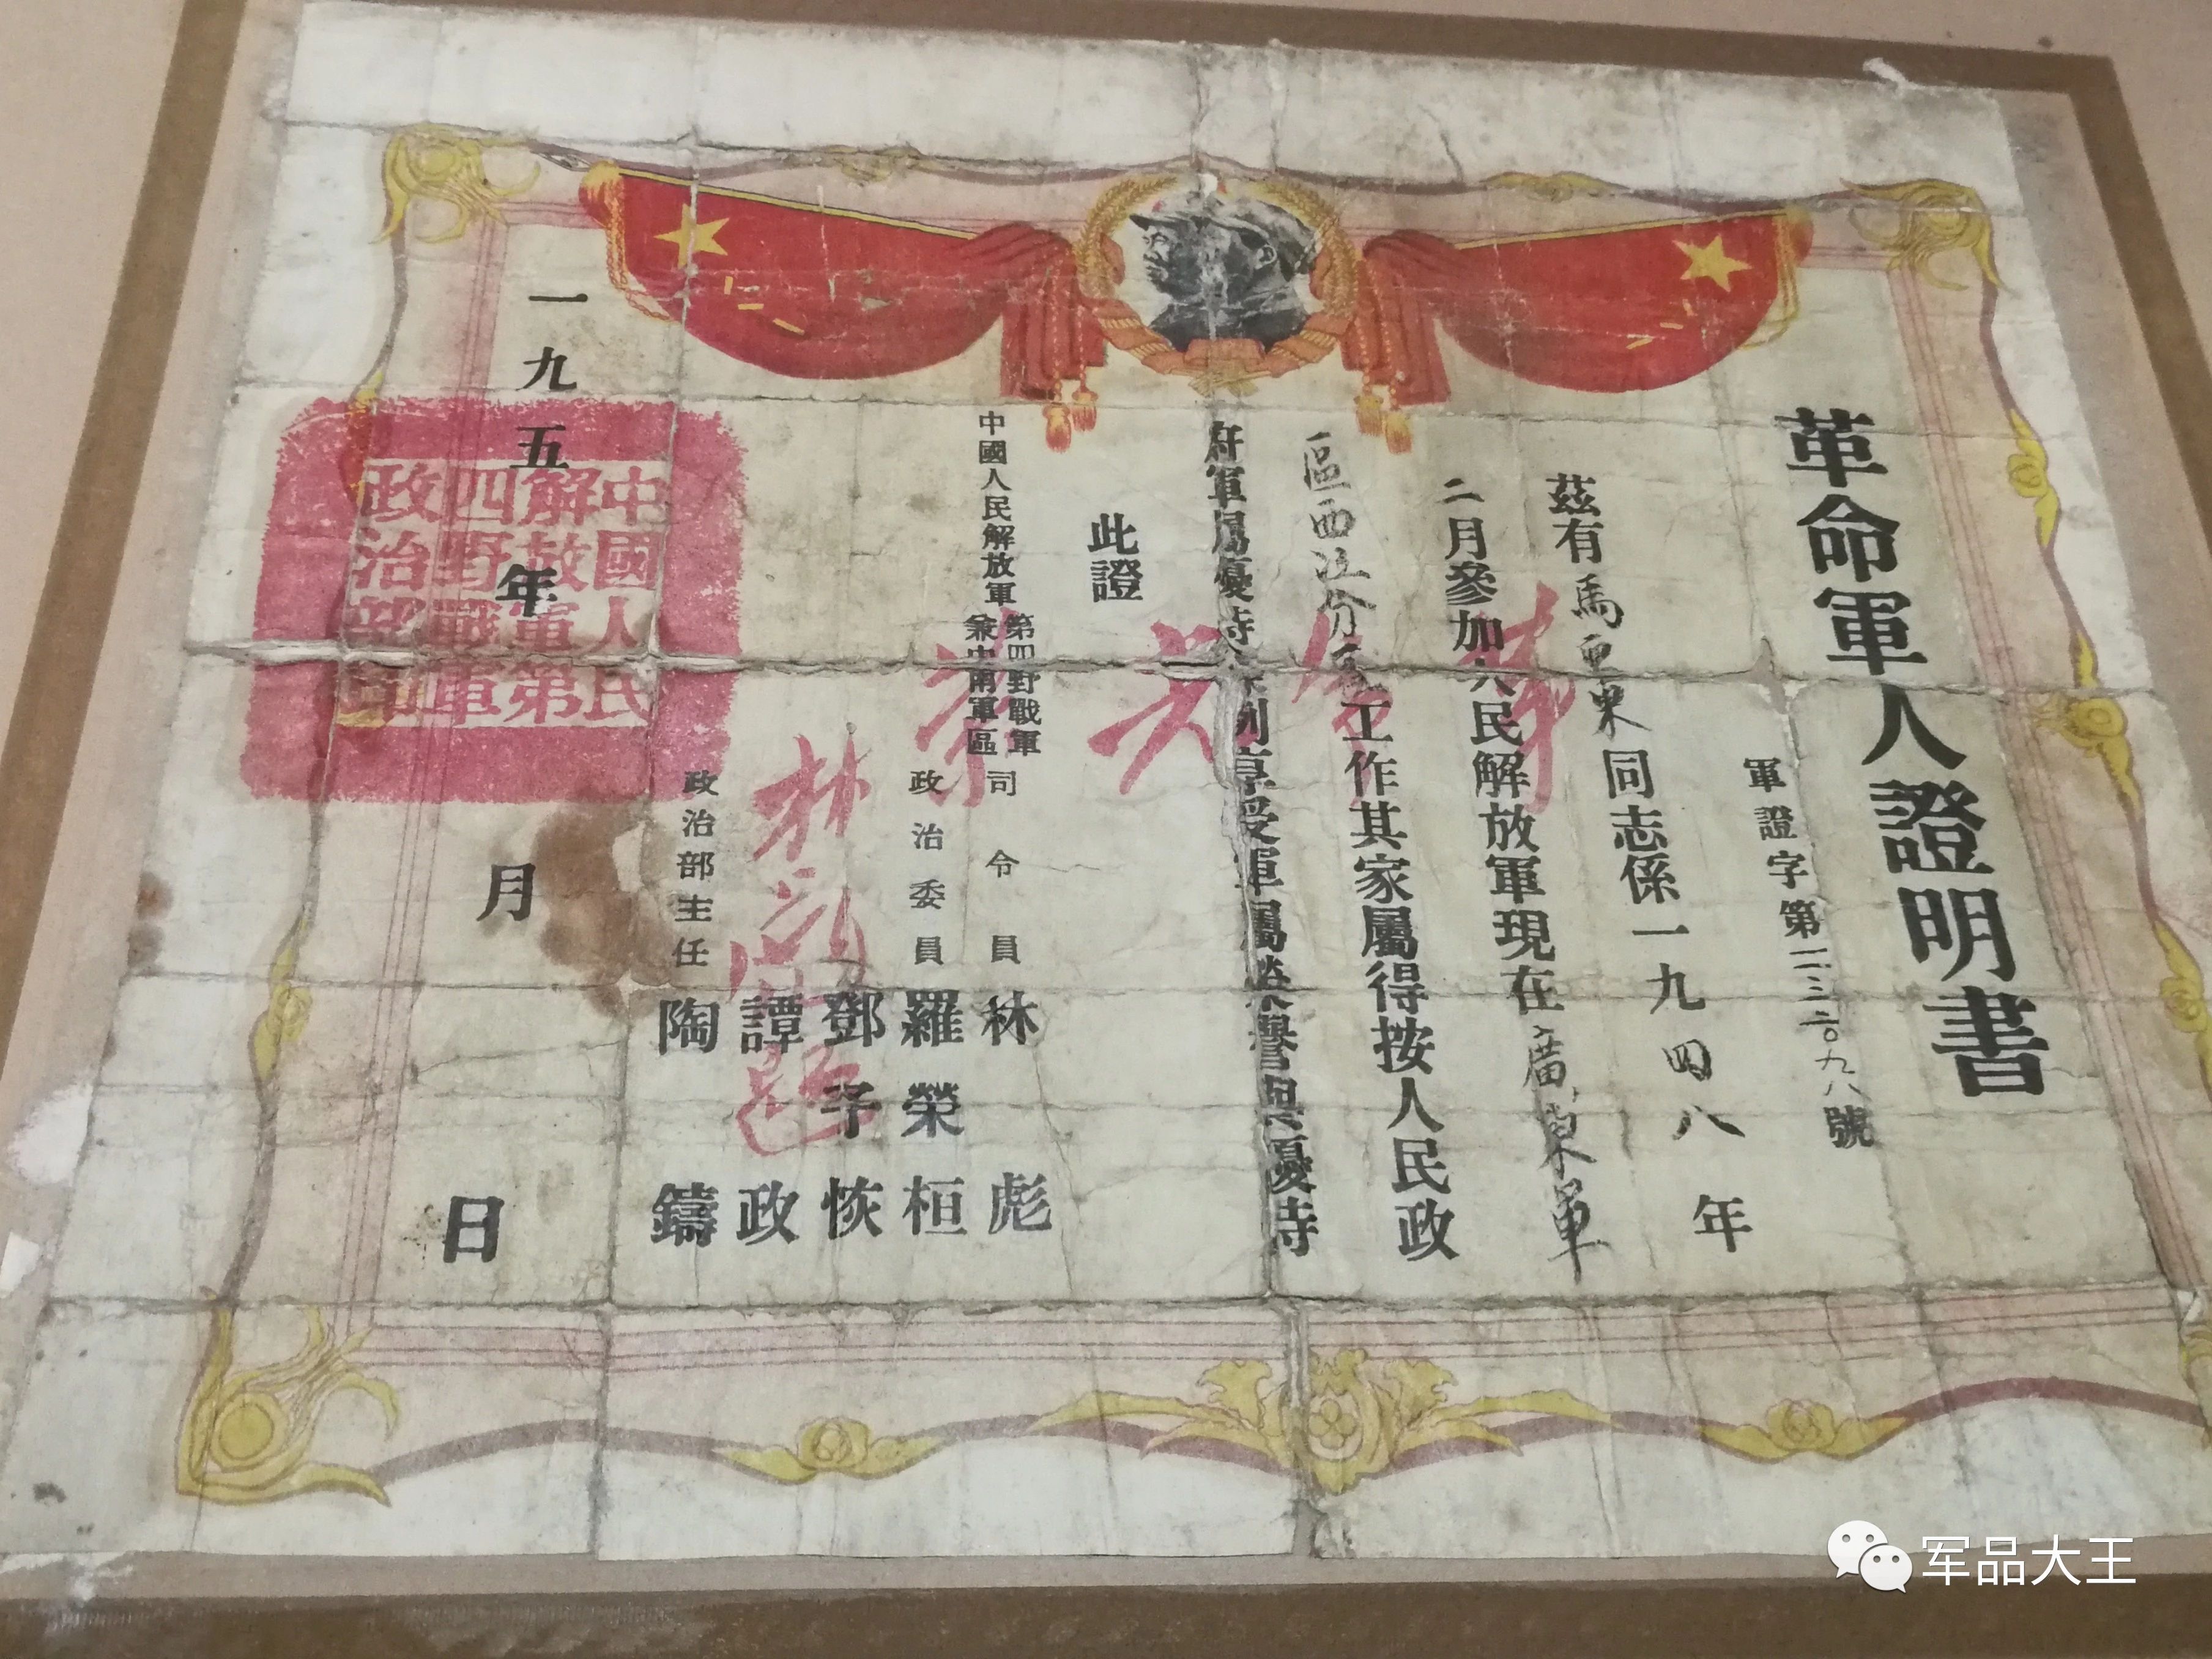 革命軍人證明書
軍證字第一三三〇九八號
茲有馬重東同志係一九四八年
二月參加人民解放軍現在廣東軍
區西江分區工作其家屬得按人民政
府軍屬優待條例享受軍屬榮譽與優待
此證
中國人民解放軍
第四野戰軍
兼中南軍區
司令員 林彪
政治委員 羅榮桓
鄧子恢
譚政
政治部主任 陶鑄
一九五 年 月 日
中國人民
解放軍第
四野戰軍
政治部印
光
林
军品大王